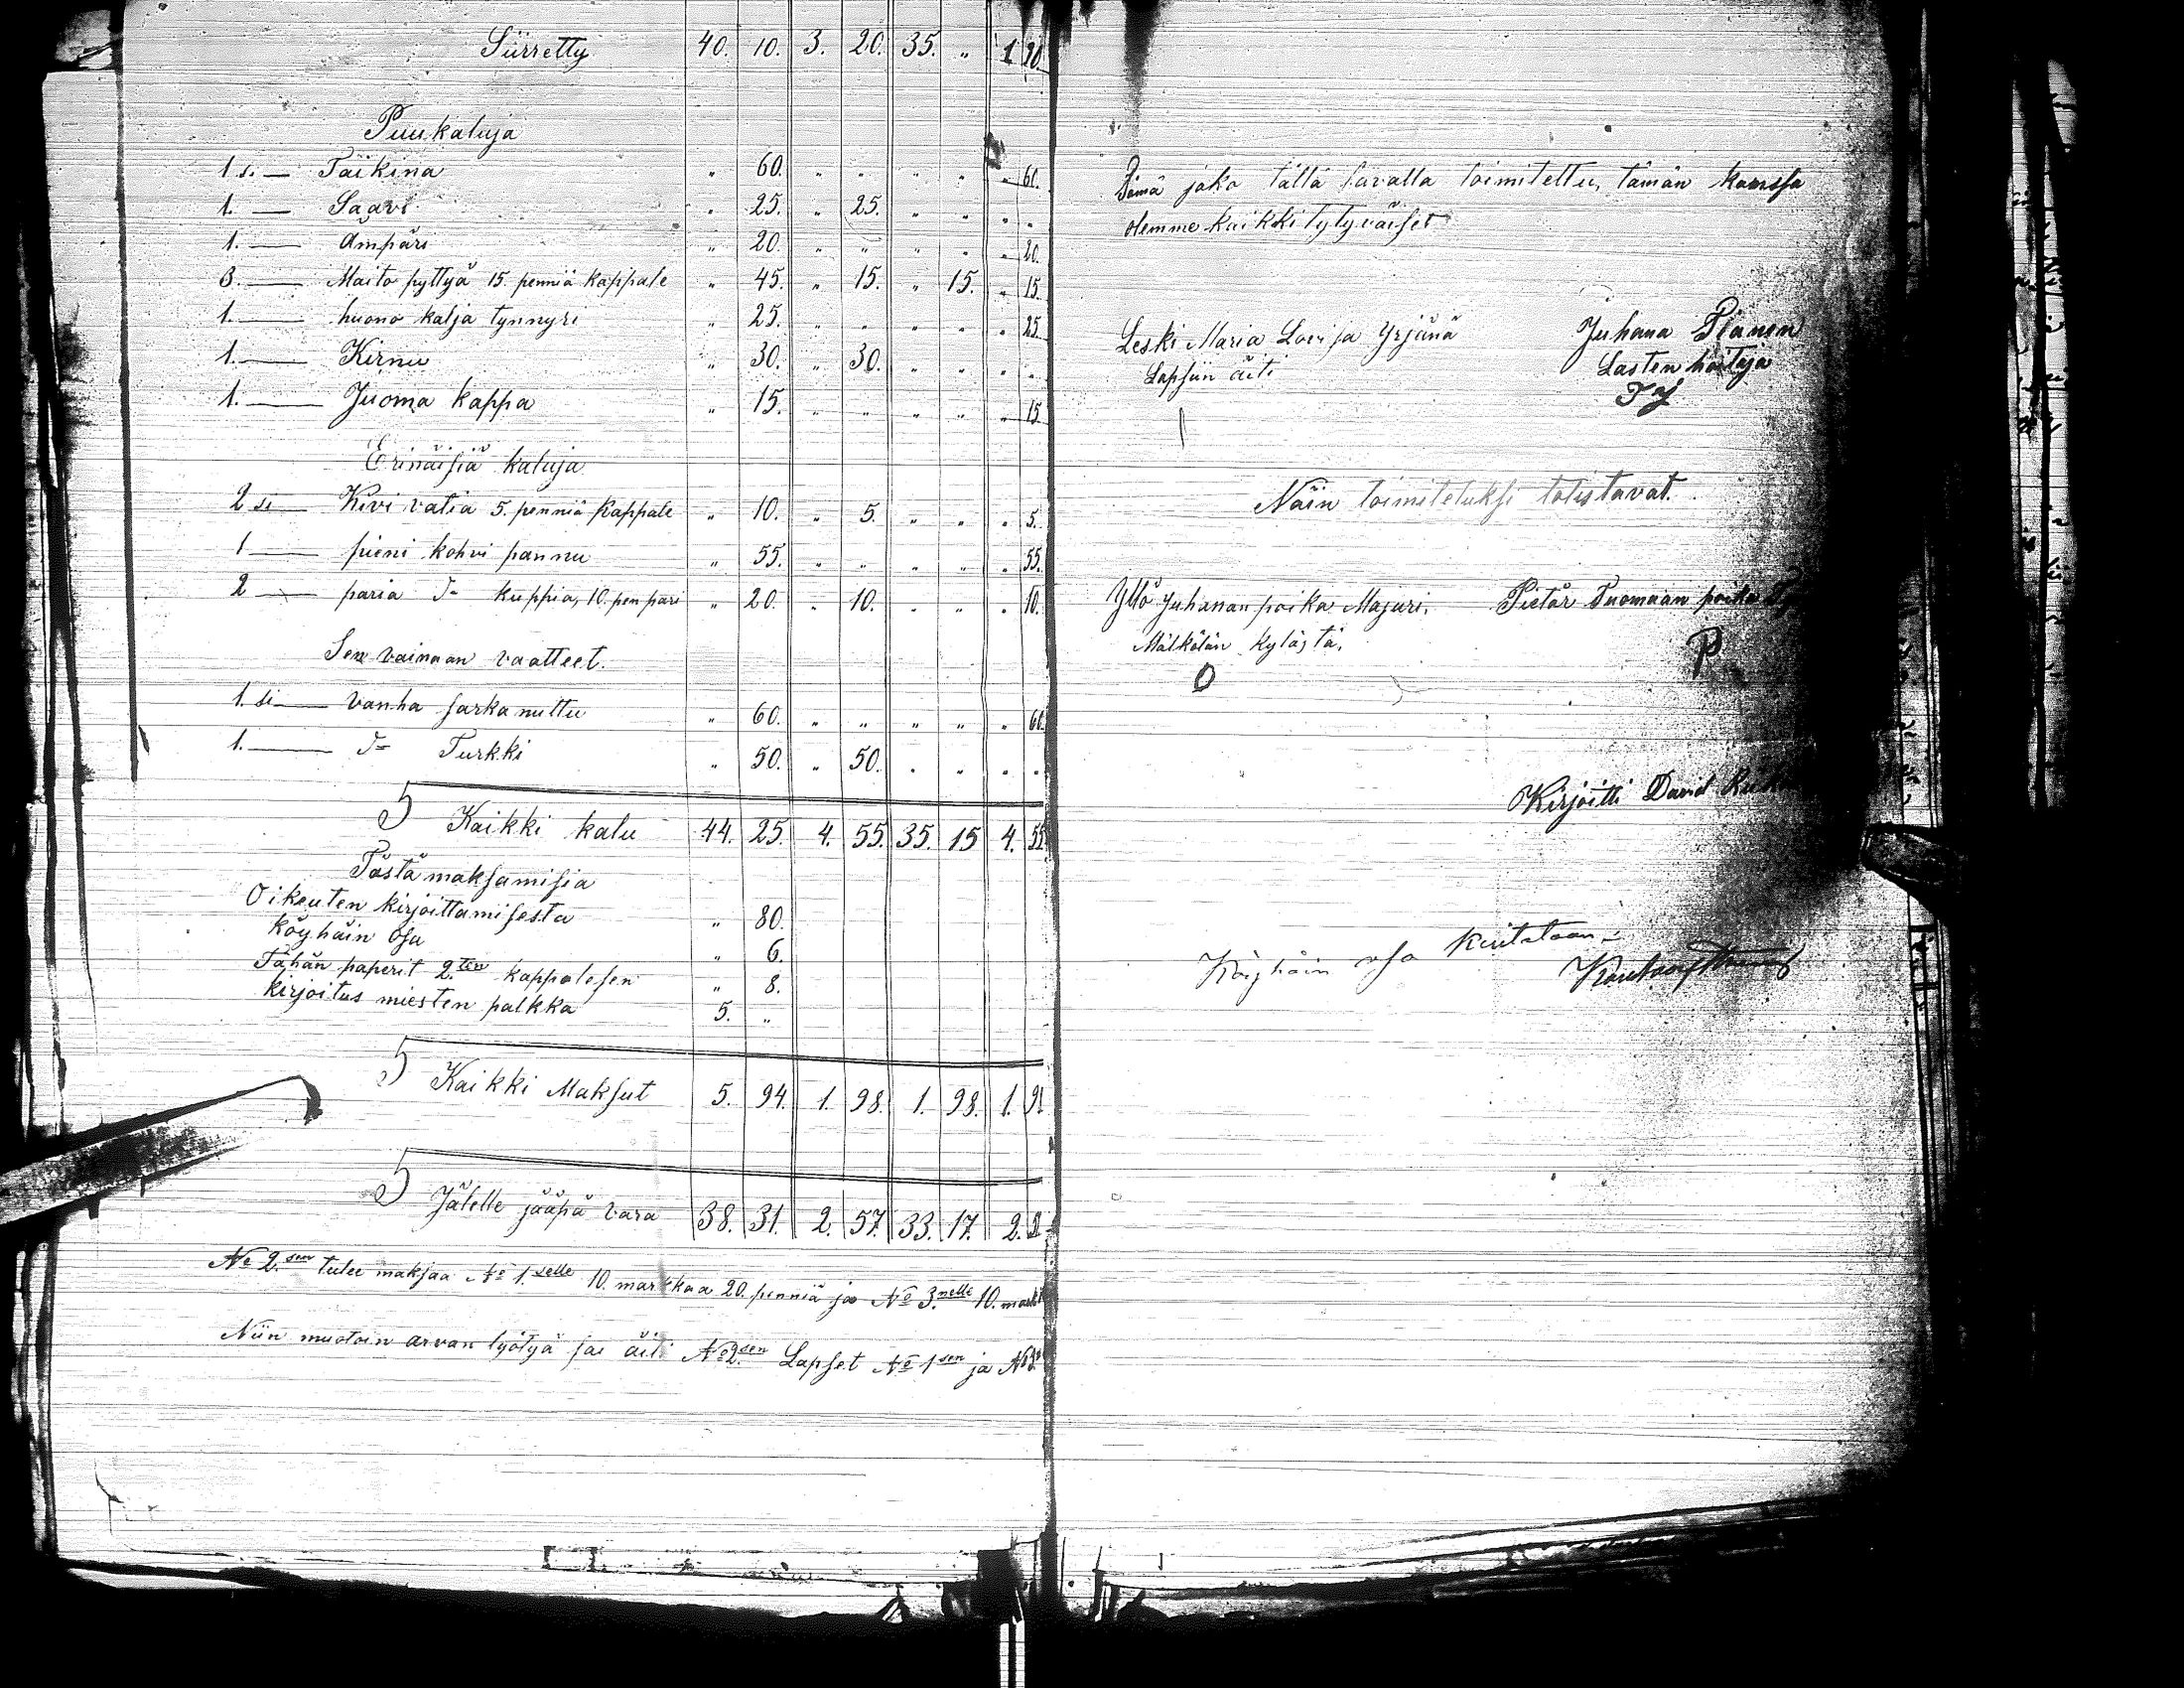 Siirretty 40. 10. 3. 20. 35. " 1 20.
Puukaluja
1 si — Taikina " 60. " " " " " 60.
1. — Saavi " 25. " 25. " " " "
1. — Ämpäri " 20. " " " " " 20.
3. — Maito pyttyä 15. penniä kappale " 45. " 15. " 15. " 15.
1. — huono kalja tynnyri " 25. " " " " " 25.
1. — Kirnu " 30. " 30. " " " "
1. — Juoma kappa " 15. " " " " " 15.
Erinäisiä kaluja
2 si — Kivi vatia 5. penniä kappale " 10. " 5. " " " 5.
1 — pieni kohvi pannu " 55. " " " " " 55.
2 — paria kuppia, 10. pen pari " 20. " 10. " " " 10.
Sen vainaan vaatteet.
1. si — vanha sarka nuttu " 60. " " " " " 60.
1. — Turkki " 50. " 50. " " " "
S Kaikki kalu 44. 25. 4. 55. 35. 15 4. 55.
Tästä maksamisia
Oikeuten kirjoittamisesta " 80.
Köyhäin osa " 6.
Tähän paperit 2.ten kappalesen " 8.
kirjoitus miesten palkka 5. "
S Kaikki Maksut 5. 94. 1. 98. 1. 98. 1. 98
S Jälelle jääpä vara 38. 31. 2. 57. 33. 17. 2.
No 2.sen tulee maksaa No 1.selle 10. markkaa 20. penniä ja No 3.nelle 10. markk
Niin muotoin arvan lyötyä sai äiti No 2sen Lapset No 1sen ja No
Tämä jako tällä tavalla toimitettu, tämän kanssa
olemme kaikki tytyväiset
Leski Maria Loviisa Yrjänä Juhana
Lapsiin äiti Lasten hoitaja
Näin toimiteluksi totistavat.
Yllö Juhanan poika Majuri. Pietär Tuomaan poika
Mälkölän kylästä.
Kirjoitti David
Köyhäin osa kuitataan